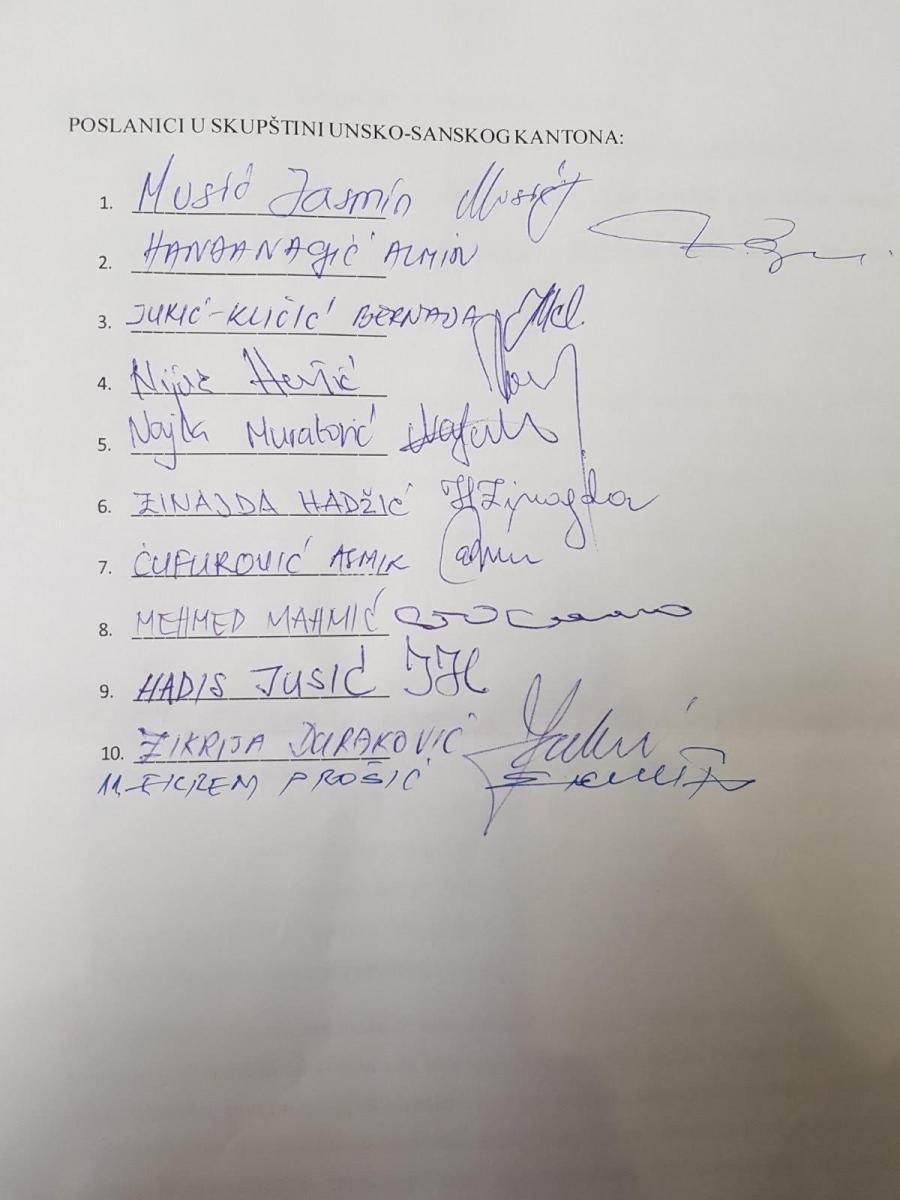 POSLANICI U SKUPŠTINI UNSKO-SANSKOG KANTONA:
1. Musić Jasmin
2. HANDANAGIĆ ALMIN
3. JUKIĆ-KLIČIĆ BERNADA
4. Nijaz
5. Najla Muratović
6. ZINAJDA HADŽIĆ
7. ĆUFUROVIĆ ASMIR
8. MEHMED MAHMIĆ
9. HADIS JUSIĆ
10. ZIKRIJA DURAKOVIĆ
11. FIKREM PROŠIĆ